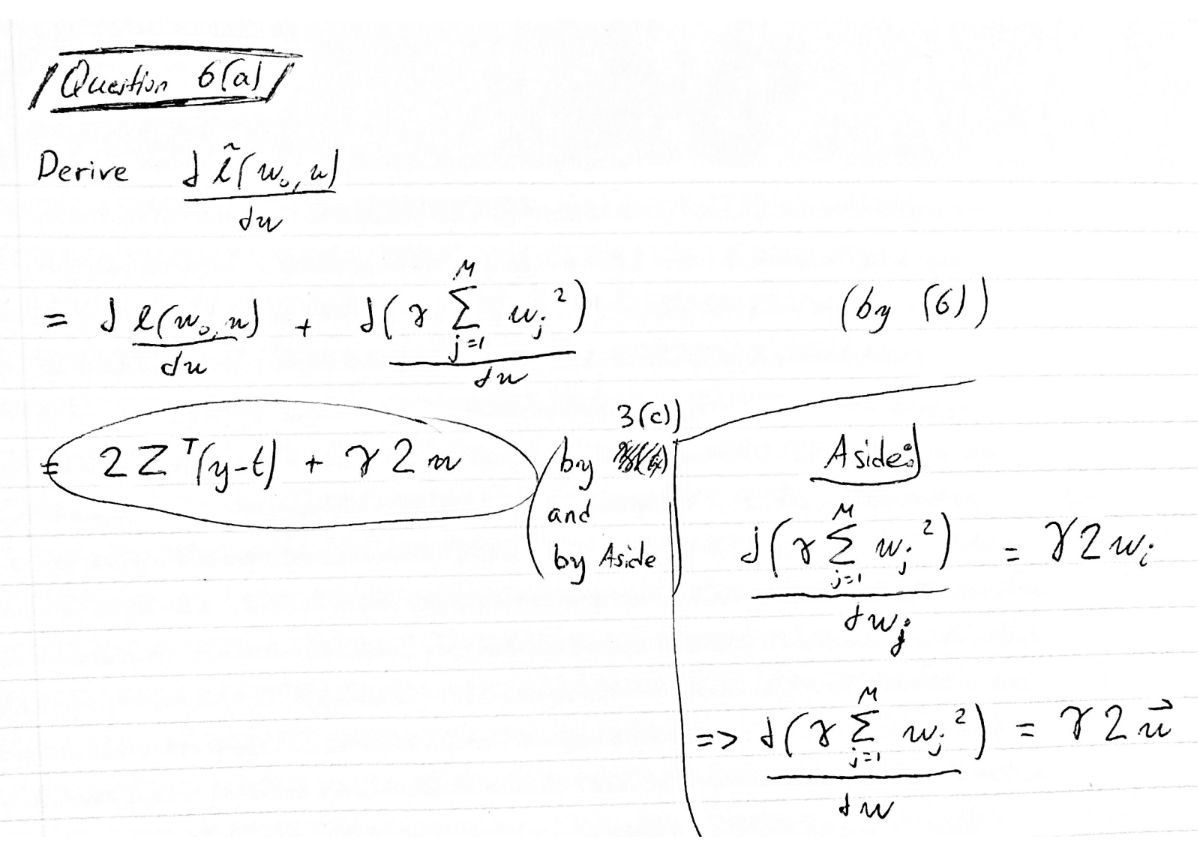 Question 6(a)
Derive ∂ l̃(w₀, w) / ∂w
= ∂ l(w₀, w) / ∂w + ∂(γ Σ_{j=1}^{M} w_j²) / ∂w (by (6))
= 2Z^T(y-t) + γ2w (by 3(c)) and by Aside
Aside:
∂(γ Σ_{j=1}^{M} w_j²) / ∂w_j = γ2w_i
=> ∂(γ Σ_{j=1}^{M} w_j²) / ∂w = γ2w⃗